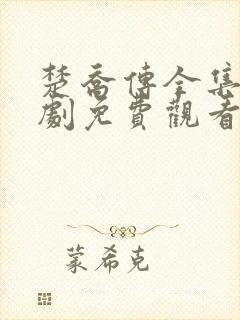 楚喬傳全集
劇免費觀看
蒙希克